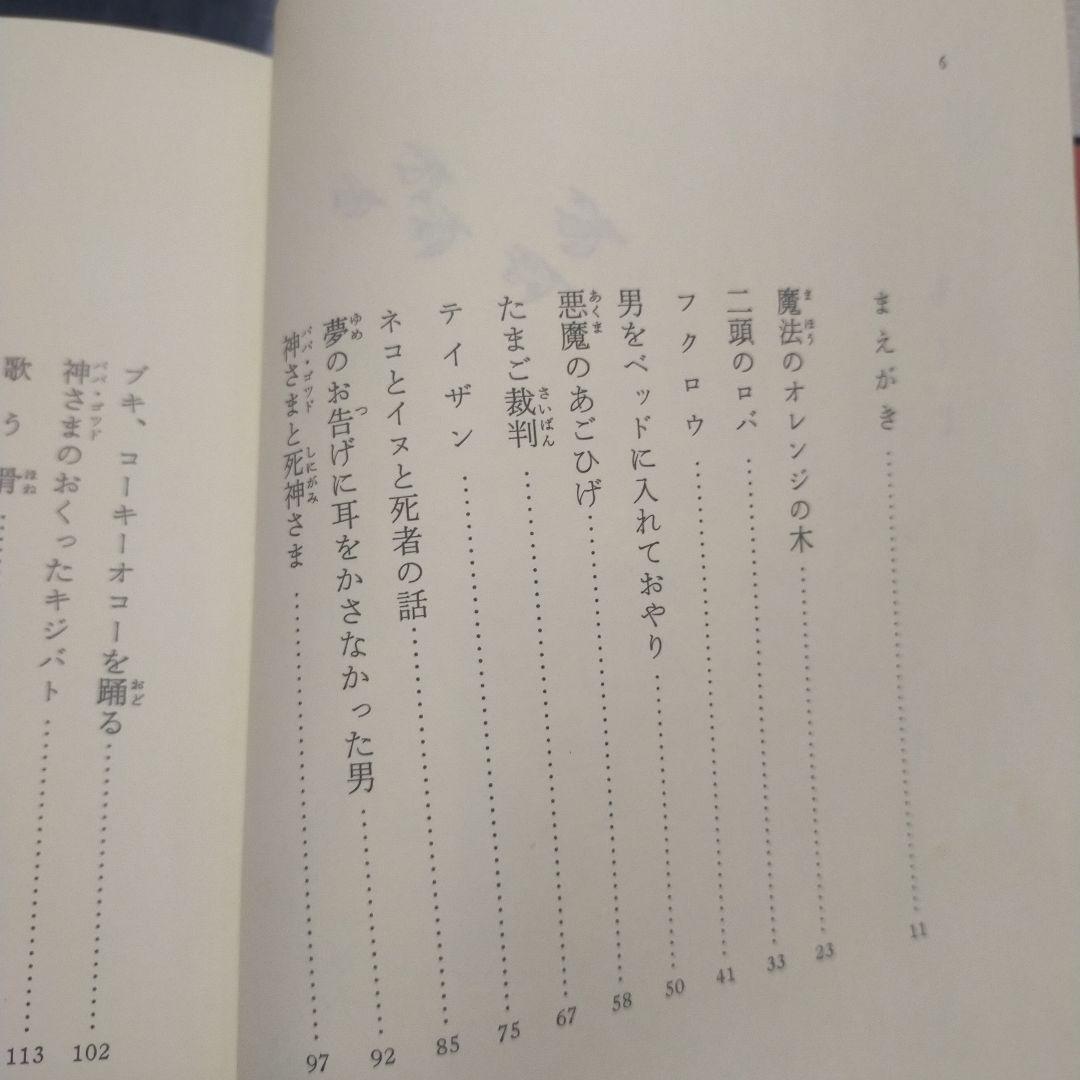 6
まえがき……11
魔法のオレンジの木……23
二頭のロバ……33
フクロウ……41
男をベッドに入れておやり……50
悪魔のあごひげ……58
たまご裁判……67
テイザン……75
ネコとイヌと死者の話……85
夢のお告げに耳をかさなかった男……92
神さまと死神さま……97
ブキ、コーキーオコーを踊る……102
神さまのおくったキジバト……113
歌う骨……